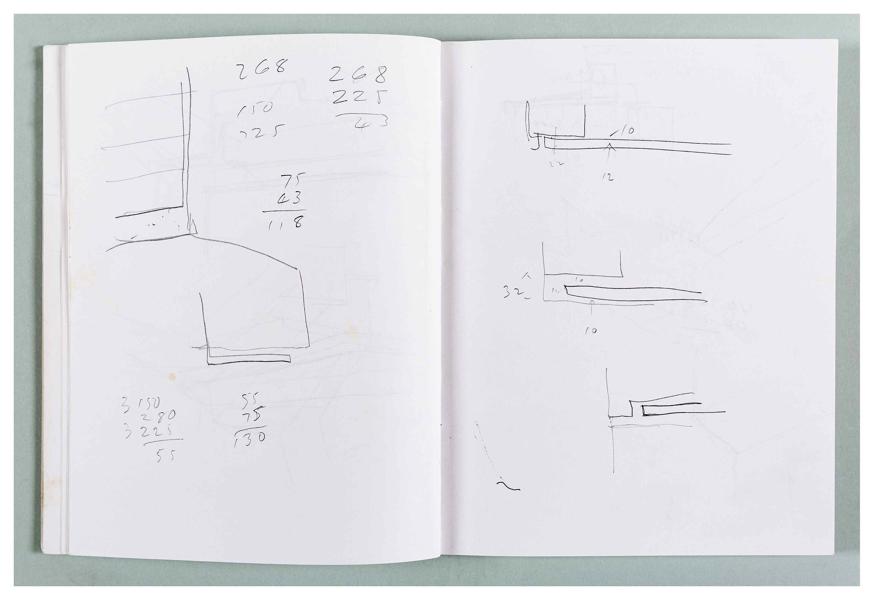 268
150
225
268
225
43
75
43
118
3 150
280
3 225
55
55
75
130
10
22
12
32
10
10